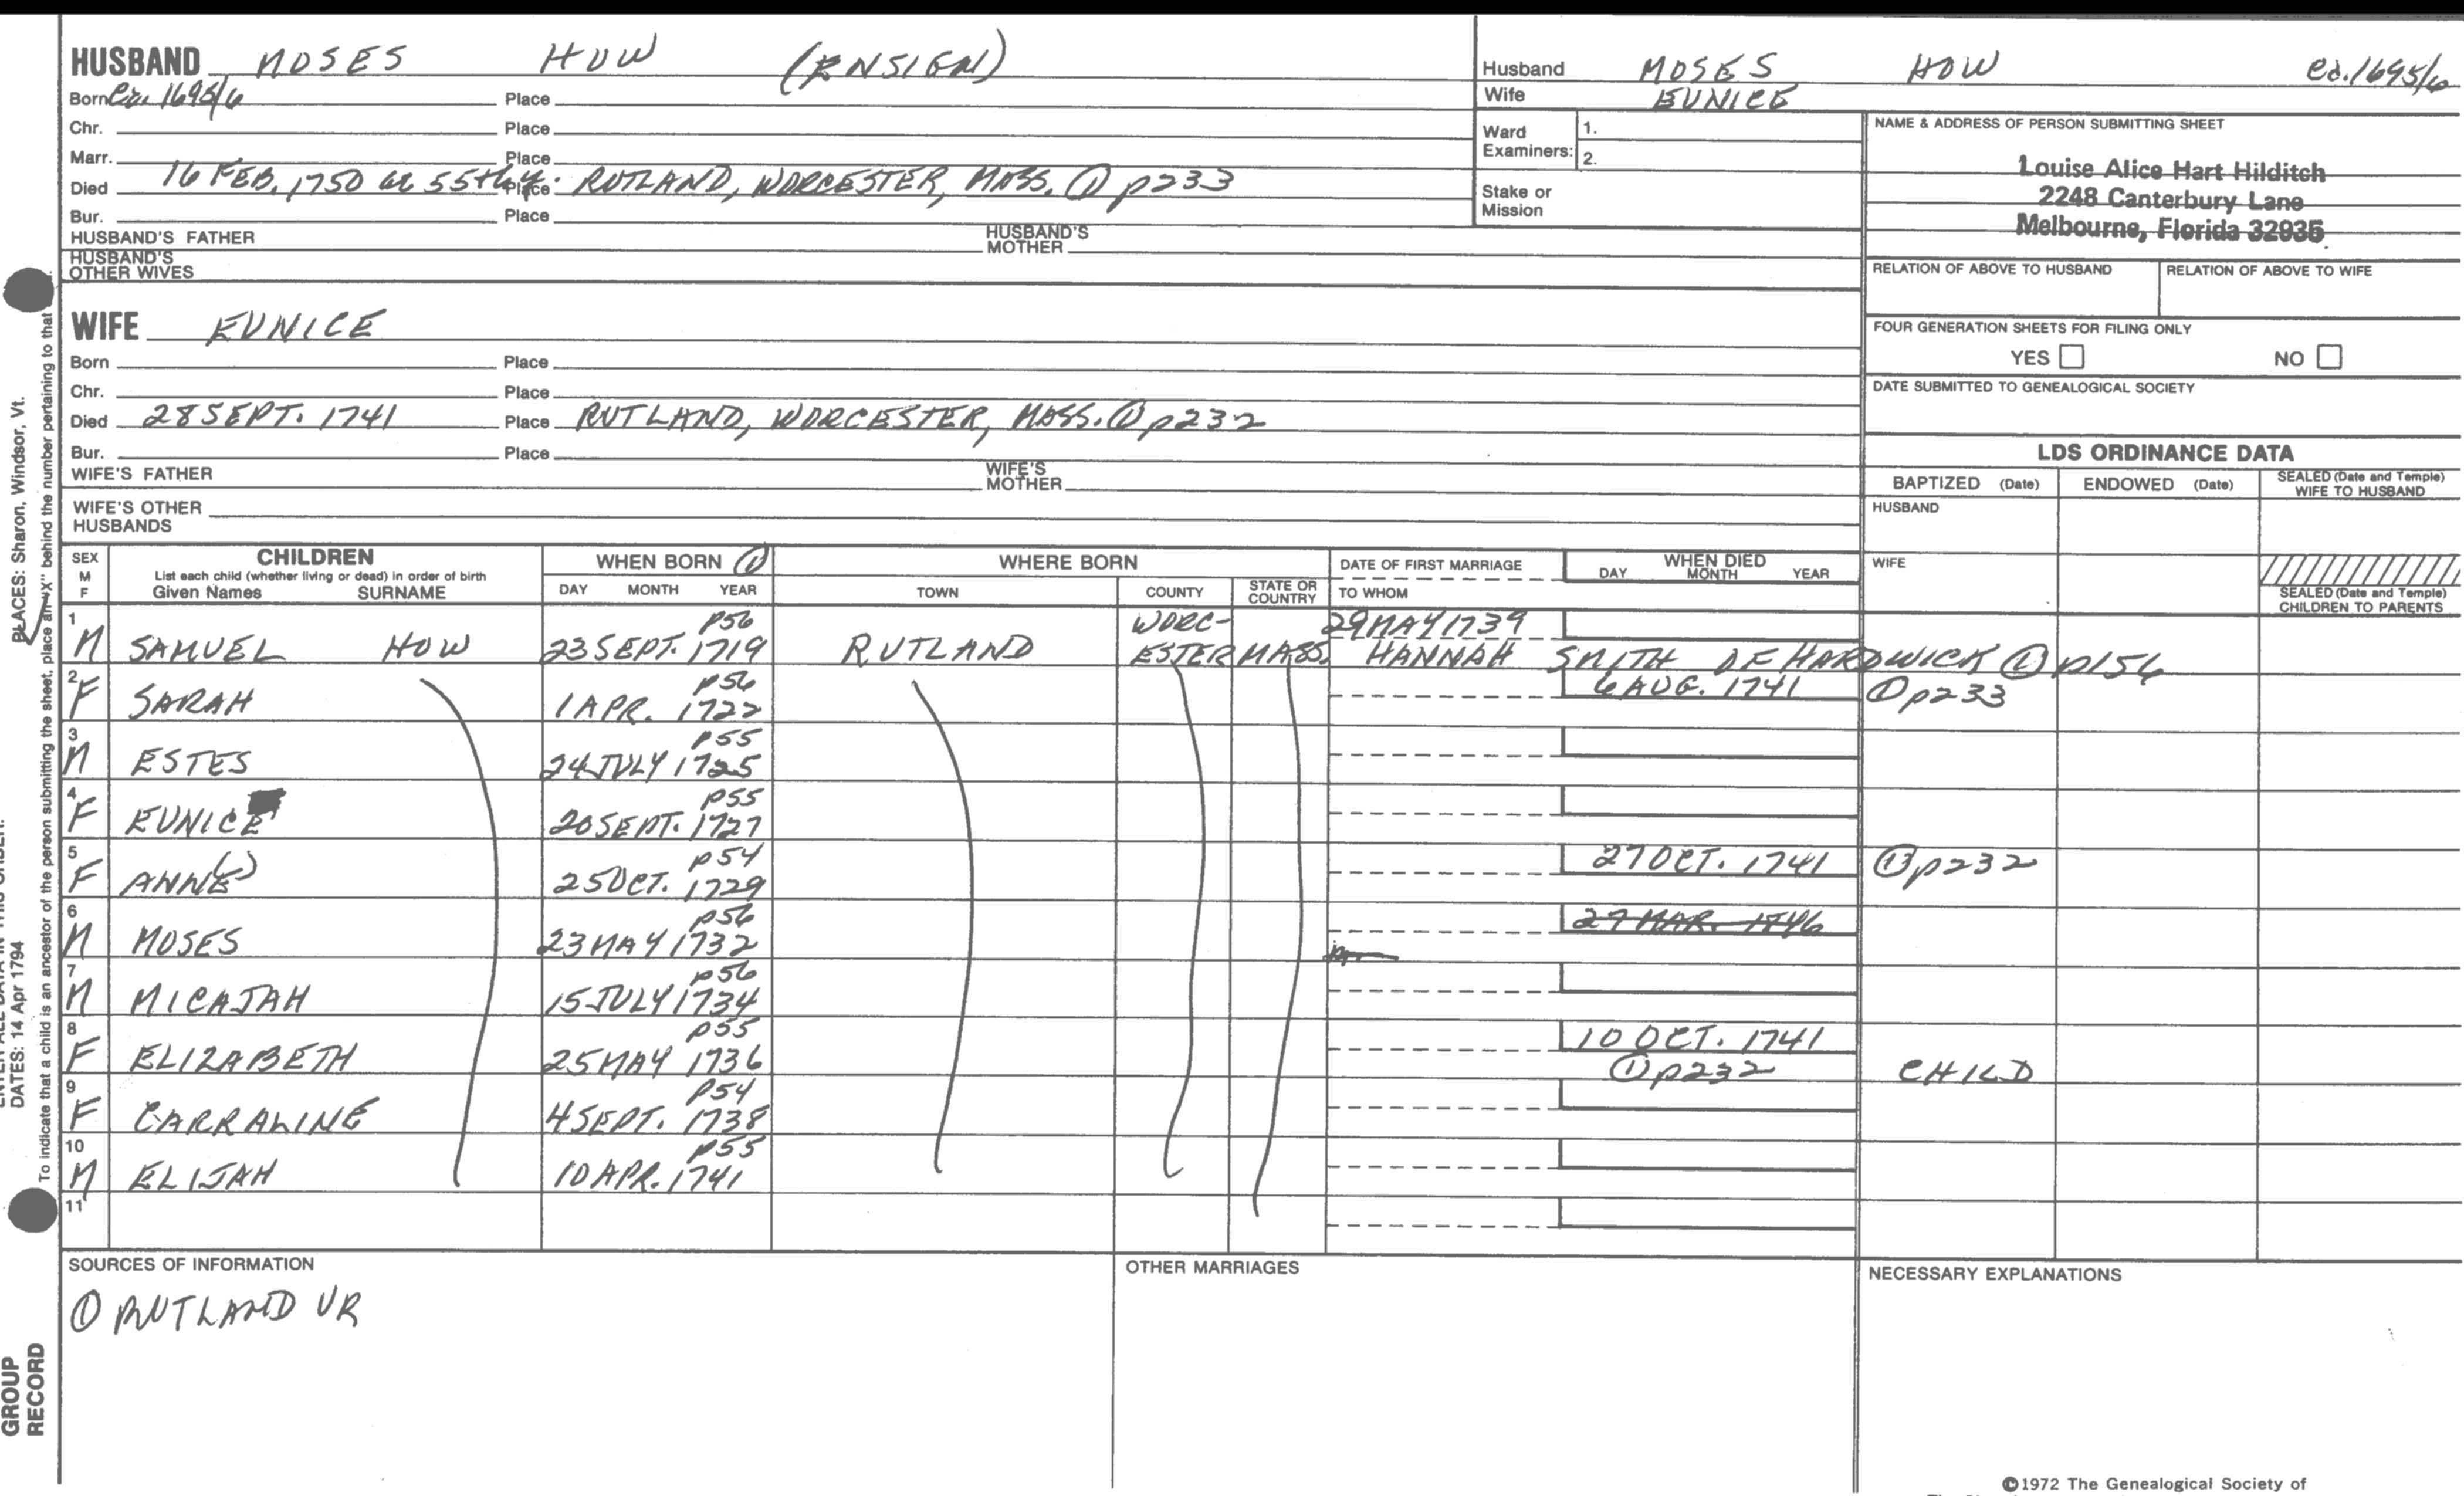 HUSBAND MOSES HOW (ENSIGN)
Born Ca. 1695/6 Place
Chr. Place
Marr. Place
Died 16 FEB. 1750 ae 55th y. Place RUTLAND, WORCESTER, MASS. ① p233
Bur. Place
HUSBAND'S FATHER HUSBAND'S MOTHER
HUSBAND'S OTHER WIVES
Husband MOSES HOW ca. 1695/6
Wife EUNICE
Ward Examiners: 1.
2.
Stake or Mission
NAME & ADDRESS OF PERSON SUBMITTING SHEET
Louise Alice Hart Hilditch
2248 Canterbury Lane
Melbourne, Florida 32935
RELATION OF ABOVE TO HUSBAND RELATION OF ABOVE TO WIFE
FOUR GENERATION SHEETS FOR FILING ONLY
YES NO
DATE SUBMITTED TO GENEALOGICAL SOCIETY
WIFE EUNICE
Born Place
Chr. Place
Died 28 SEPT. 1741 Place RUTLAND, WORCESTER, MASS. ① p232
Bur. Place
WIFE'S FATHER WIFE'S MOTHER
WIFE'S OTHER HUSBANDS
LDS ORDINANCE DATA
BAPTIZED (Date) ENDOWED (Date) SEALED (Date and Temple) WIFE TO HUSBAND
HUSBAND
WIFE
SEALED (Date and Temple) CHILDREN TO PARENTS
SEX M F
CHILDREN
List each child (whether living or dead) in order of birth
Given Names SURNAME
WHEN BORN ①
DAY MONTH YEAR
WHERE BORN
TOWN COUNTY STATE OR COUNTRY
DATE OF FIRST MARRIAGE
TO WHOM
WHEN DIED
DAY MONTH YEAR
1 M SAMUEL HOW p56 23 SEPT. 1719 RUTLAND WORC-ESTER MASS. 29 MAY 1739
HANNAH SMITH OF HARDWICK ① p156
2 F SARAH p56 1 APR. 1722 6 AUG. 1741 ① p233
3 M ESTES p55 24 JULY 1725
4 F EUNICE p55 20 SEPT. 1727
5 F ANN(E) p54 25 OCT. 1729 27 OCT. 1741 ① p232
6 M MOSES p56 23 MAY 1732 27 MAR. 1746
7 M MICAJAH p56 15 JULY 1734
8 F ELIZABETH p55 25 MAY 1736 10 OCT. 1741
① p232 CHILD
9 F CARRALINE p54 4 SEPT. 1738
10 M ELIJAH p55 10 APR. 1741
11
SOURCES OF INFORMATION
① RUTLAND VR
OTHER MARRIAGES
NECESSARY EXPLANATIONS
©1972 The Genealogical Society of
PLACES: Sharon, Windsor, Vt.
DATES: 14 Apr 1794
To indicate that a child is an ancestor of the person submitting the sheet, place an "X" behind the number pertaining to that
GROUP
RECORD